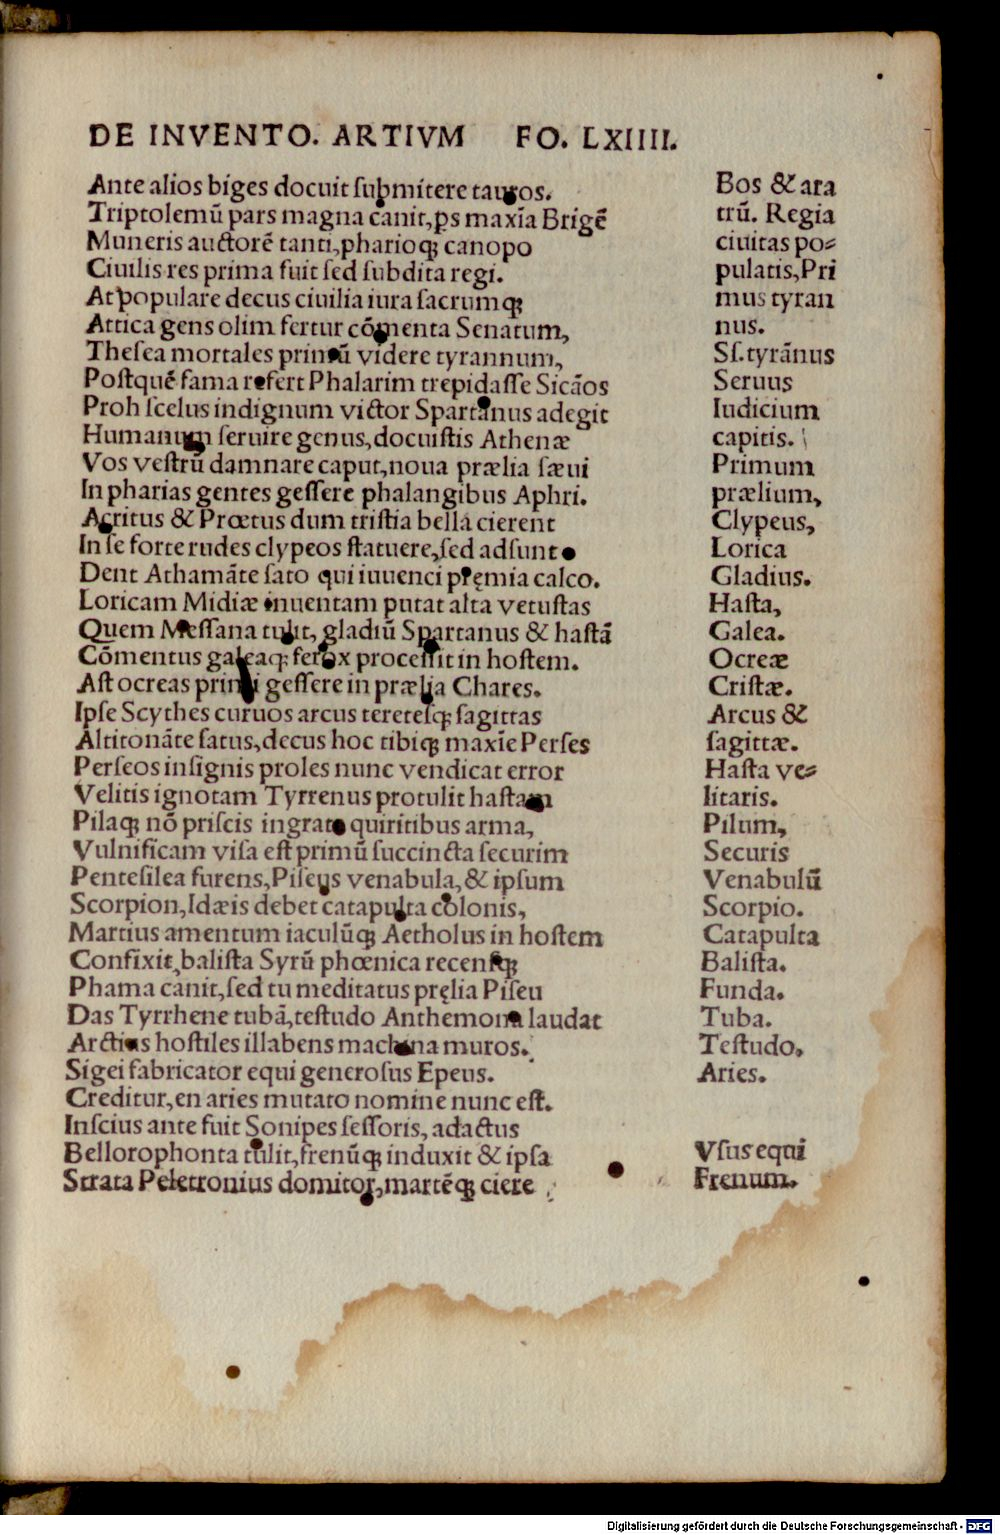 DE INVENTO. ARTIVM FO. LXIIII.
Ante alios biges docuit ſubmitere tauros.
Triptolemū pars magna canit, ꝑs maxīa Brigē
Muneris auctorē tanti, pharioqꝫ canopo
Ciuilis res prima fuit ſed ſubdita regi.
At populare decus ciuilia iura ſacrumqꝫ
Attica gens olim fertur cōmenta Senatum,
Theſea mortales primū videre tyrannum,
Poſtquē fama refert Phalarim trepidaſſe Sicāos
Proh ſcelus indignum victor Spartanus adegit
Humanum ſeruire genus, docuiſtis Athenæ
Vos veſtrū damnare caput, noua prælia ſæui
In pharias gentes geſſere phalangibus Aphri.
Acritus & Prœtus dum triſtia bella cierent
In ſe forte rudes clypeos ſtatuere, ſed adſunt
Dent Athamāte ſato qui iuuenci pręmia calco.
Loricam Midiæ inuentam putat alta vetuſtas
Quem Meſſana tulit, gladiū Spartanus & haſtā
Cōmentus galeaqꝫ ferox proceſſit in hoſtem.
Aſt ocreas primi geſſere in prælia Chares.
Ipſe Scythes curuos arcus tereteſqꝫ ſagittas
Altitonāte ſatus, decus hoc tibiqꝫ maxīe Perſes
Perſeos inſignis proles nunc vendicat error
Velitis ignotam Tyrrenus protulit haſtam
Pilaqꝫ nō priſcis ingrata quiritibus arma,
Vulnificam viſa eſt primū ſuccincta ſecurim
Penteſilea furens, Piſeus venabula, & ipſum
Scorpion, Idæis debet catapulta colonis,
Martius amentum iaculūqꝫ Aetholus in hoſtem
Confixit, baliſta Syrū phœnica recenſqꝫ
Phama canit, ſed tu meditatus pręlia Piſeu
Das Tyrrhene tubā, teſtudo Anthemona laudat
Arctius hoſtiles illabens machina muros.
Sigei fabricator equi generoſus Epeus.
Creditur, en aries mutato nomine nunc eſt.
Inſcius ante fuit Sonipes ſeſſoris, adactus
Bellorophonta tulit, frenūqꝫ induxit & ipſa
Strata Peletronius domitor, martēqꝫ ciere
Bos & ara
trū. Regia
ciuitas po⸗
pulatis, Pri
mus tyran
nus.
Sſ. tyrānus
Seruus
Iudicium
capitis.
Primum
prælium,
Clypeus,
Lorica
Gladius.
Haſta,
Galea.
Ocreæ
Criſtæ.
Arcus &
ſagittæ.
Haſta ve⸗
litaris.
Pilum,
Securis
Venabulū
Scorpio.
Catapulta
Baliſta.
Funda.
Tuba.
Teſtudo,
Aries.
Vſus equi
Frenum.
Digitalisierung gefördert durch die Deutsche Forschungsgemeinschaft - DFG